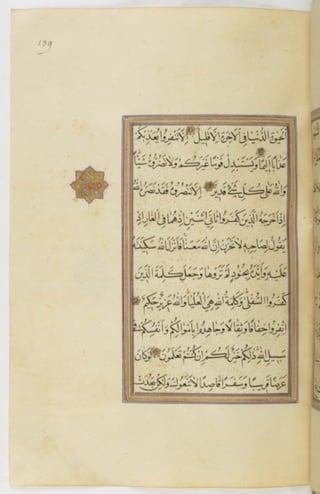 139
الحيوة الدنيا في الاخرة الا قليل الا تنفروا يعذبكم
عذابا اليما ويستبدل قوما غيركم ولا تضروه شيئا
والله على كل شئ قدير الا تنصروه فقد نصره الله
اذ اخرجه الذين كفروا ثاني اثنين اذ هما في الغار اذ
يقول لصاحبه لا تحزن ان الله معنا فانزل الله سكينته
عليه وايده بجنود لم تروها وجعل كلمة الذين
كفروا السفلى وكلمة الله هي العليا والله عزيز حكيم
انفروا خفافا وثقالا وجاهدوا باموالكم وانفسكم في
سبيل الله ذلكم خير لكم ان كنتم تعلمون لو كان
عرضا قريبا وسفرا قاصدا لاتبعوك ولكن بعدت